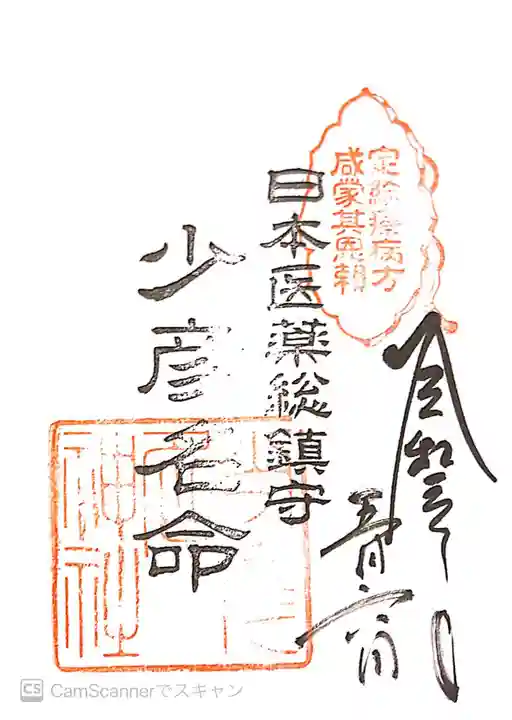 療病方
咸蒙其恩頼
日本医薬総鎮守
少彦名命
令和
五月
神社
CS CamScannerでスキャン